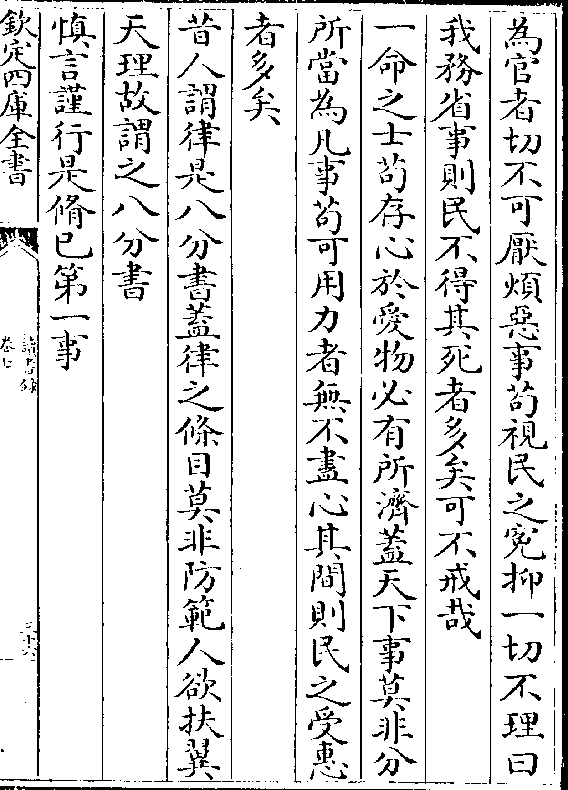 為官者切不可厭煩惡事茍視民之寃抑一切不理曰
我務省事則民不得其死者多矣可不戒哉
一命之士茍存心於愛物必有所濟蓋天下事莫非分
所當為凡事茍可用力者無不盡心其間則民之受惠
者多矣
昔人謂律是八分書蓋律之條目莫非防範人欲扶翼
天理故謂之八分書
慎言謹行是脩已第一事
欽定四庫全書
讀書錄
卷七